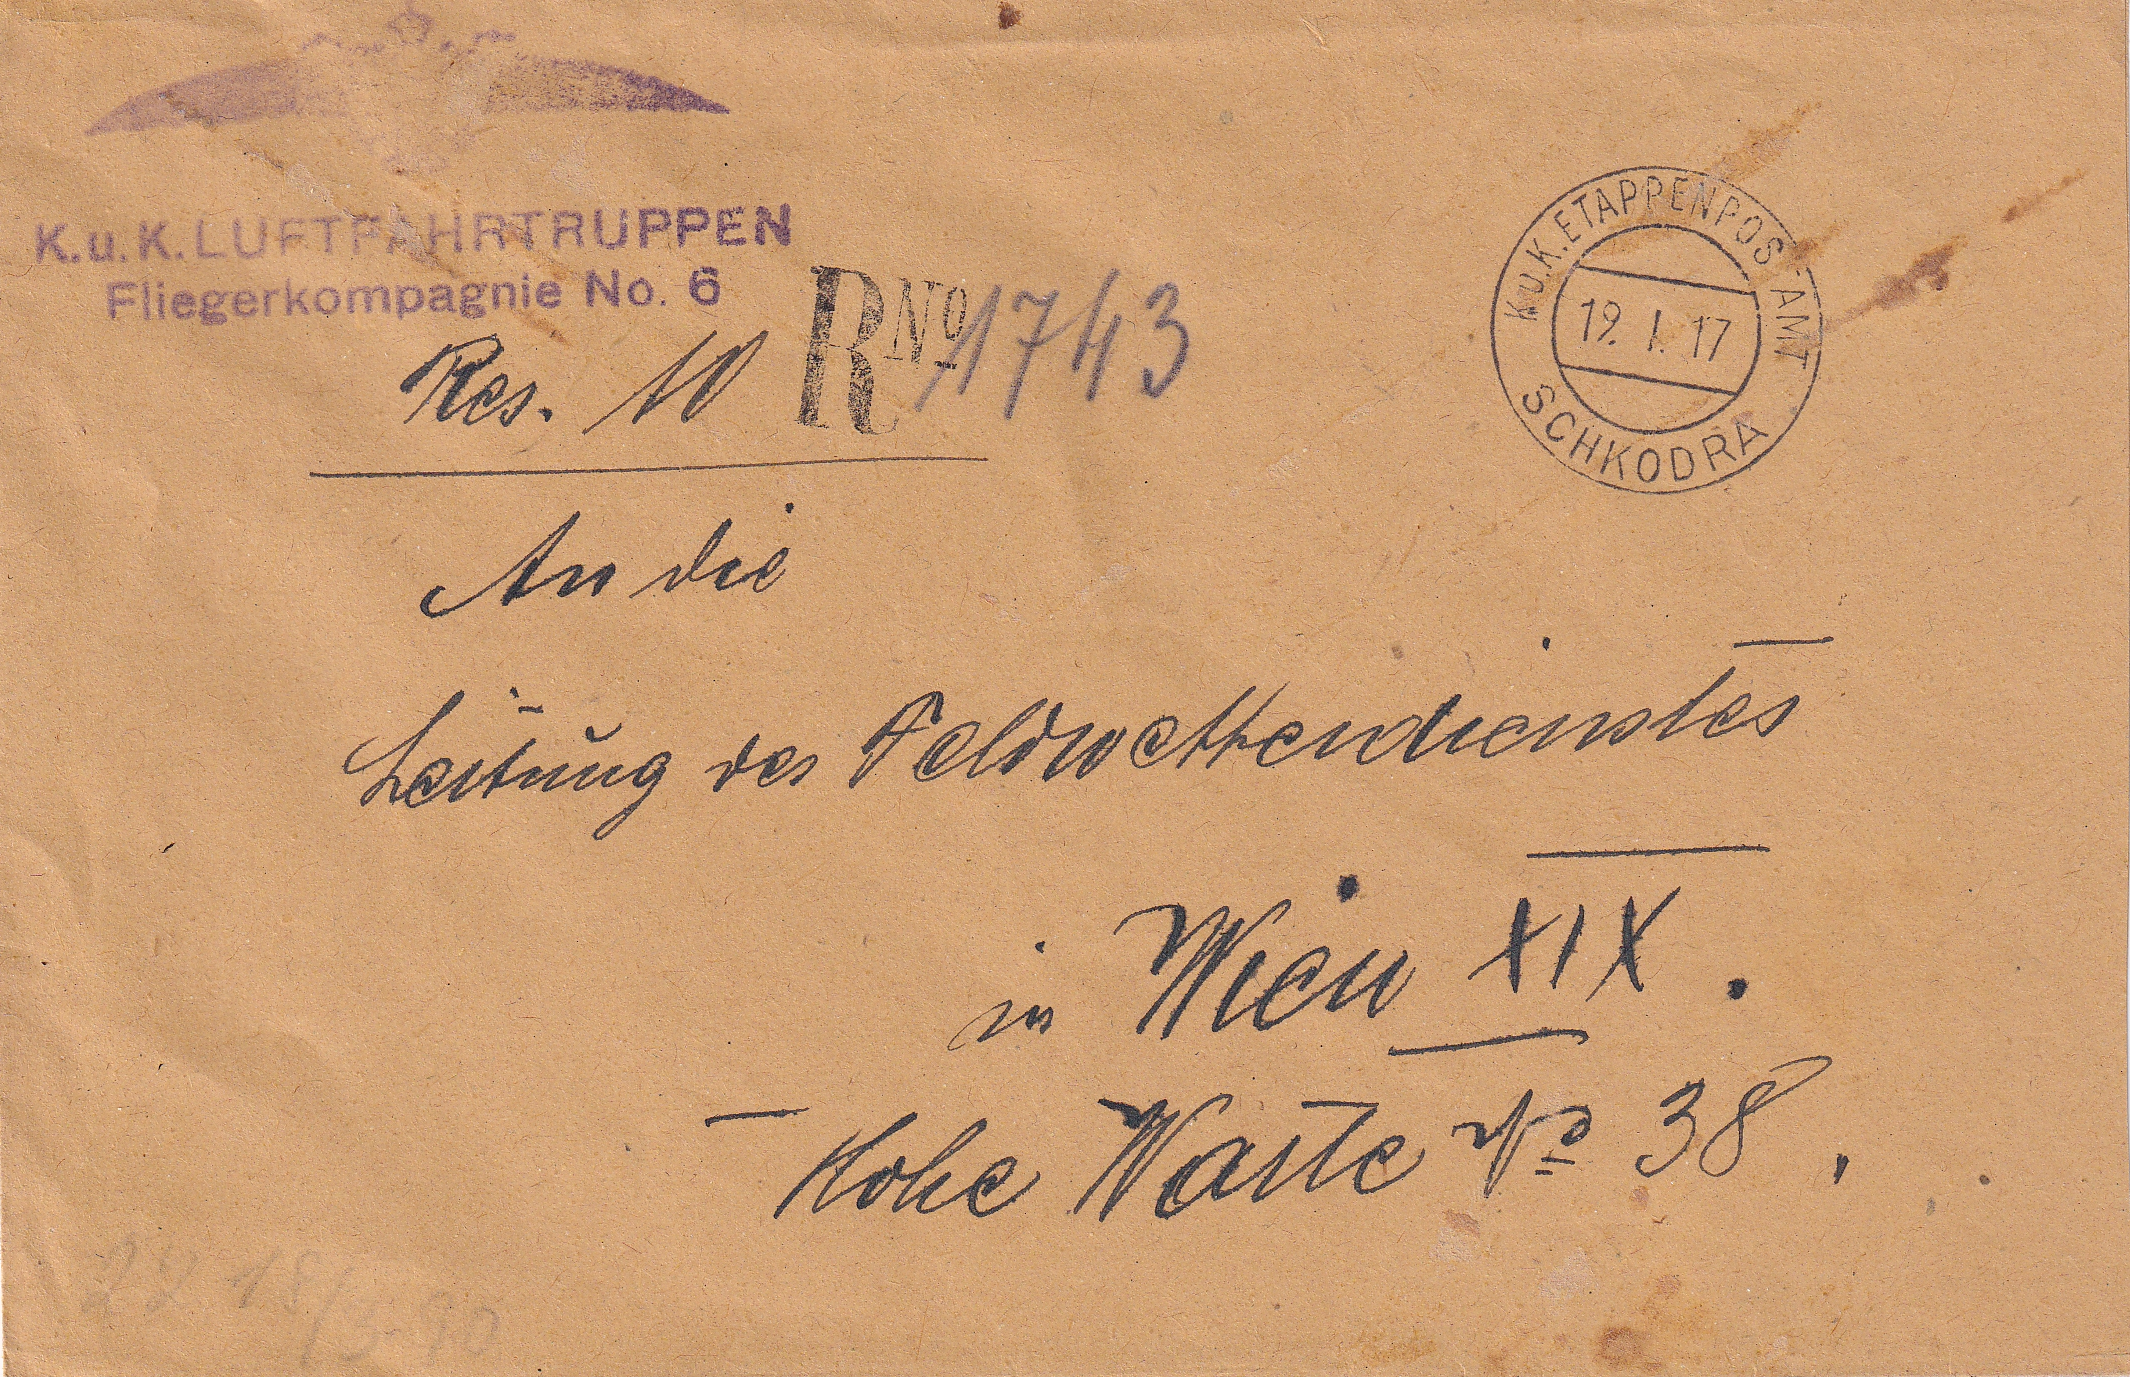 K.u.K. LUFTFAHRTRUPPEN
Fliegerkompagnie No. 6
Res. 10
RNo 1743
K.u.K. ETAPPENPOSTAMT
19. I. 17
SCHKODRA
An die
Leitung des Feldwetterdienstes
in Wien XIX.
Hohe Warte No 38,